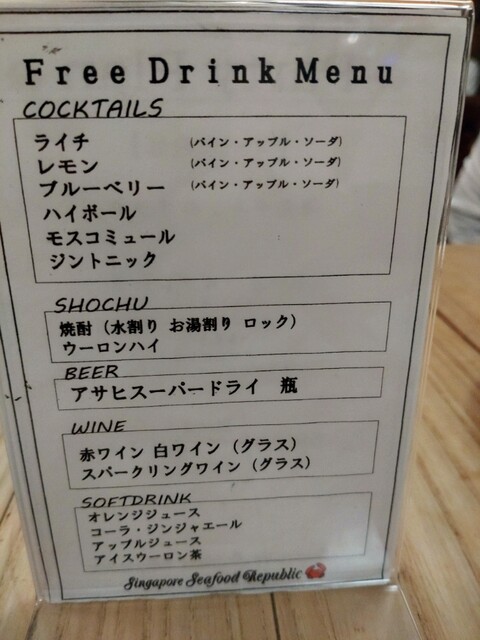 Free Drink Menu
COCKTAILS
ライチ (パイン・アップル・ソーダ)
レモン (パイン・アップル・ソーダ)
ブルーベリー (パイン・アップル・ソーダ)
ハイボール
モスコミュール
ジントニック
SHOCHU
焼酎（水割り お湯割り ロック）
ウーロンハイ
BEER
アサヒスーパードライ 瓶
WINE
赤ワイン 白ワイン（グラス）
スパークリングワイン（グラス）
SOFTDRINK
オレンジジュース
コーラ・ジンジャエール
アップルジュース
アイスウーロン茶
Singapore Seafood Republic